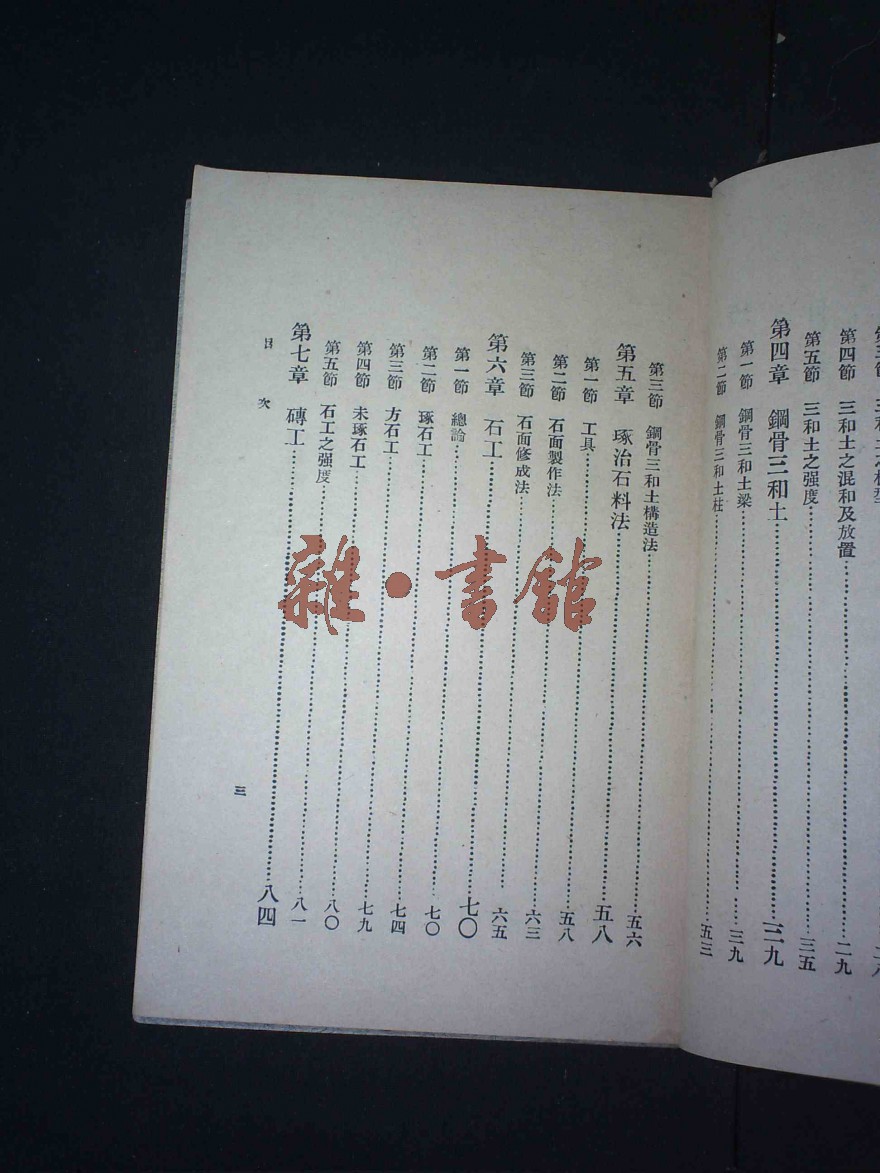 第四節 三和土之混和及放置……二九
第五節 三和土之强度……三五
第四章 鋼骨三和土……三九
第一節 鋼骨三和土梁……三九
第二節 鋼骨三和土柱……五三
第三節 鋼骨三和土構造法……五六
第五章 琢治石料法……五八
第一節 工具……五八
第二節 石面製作法……六三
第三節 石面修成法……六五
第六章 石工……七〇
第一節 總論……七〇
第二節 琢石工……七四
第三節 方石工……七九
第四節 未琢石工……八〇
第五節 石工之强度……八一
第七章 磚工……八四
目次
三
雜·書館